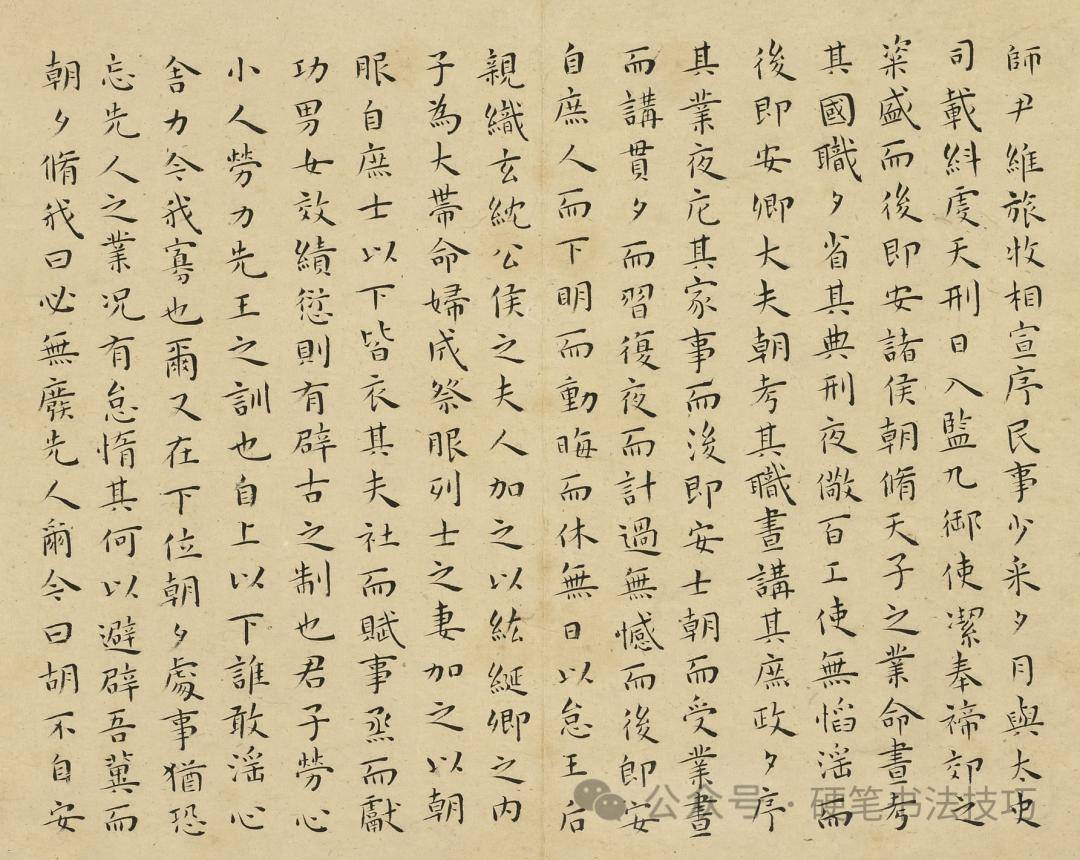 師尹維旅牧相宣序民事少采夕月與太史
司載糾虔天刑日入監九御使潔奉禘郊之
粢盛而後即安諸侯朝脩天子之業命晝考
其國職夕省其典刑夜儆百工使無慆滛而
後即安卿大夫朝考其職晝講其庶政夕序
其業夜庀其家事而後即安士朝而受業晝
而講貫夕而習復夜而計過無憾而後即安
自庶人而下明而動晦而休無日以怠王后
親織玄紞公侯之夫人加之以紘綖卿之内
子為大帶命婦成祭服列士之妻加之以朝
服自庶士以下皆衣其夫社而賦事烝而獻
功男女效績愆則有辟古之制也君子勞心
小人勞力先王之訓也自上以下誰敢滛心
舍力今我寡也爾又在下位朝夕處事猶恐
忘先人之業况有怠惰其何以避辟吾冀而
朝夕脩我曰必無廢先人爾今曰胡不自安
公众号·硬笔书法技巧